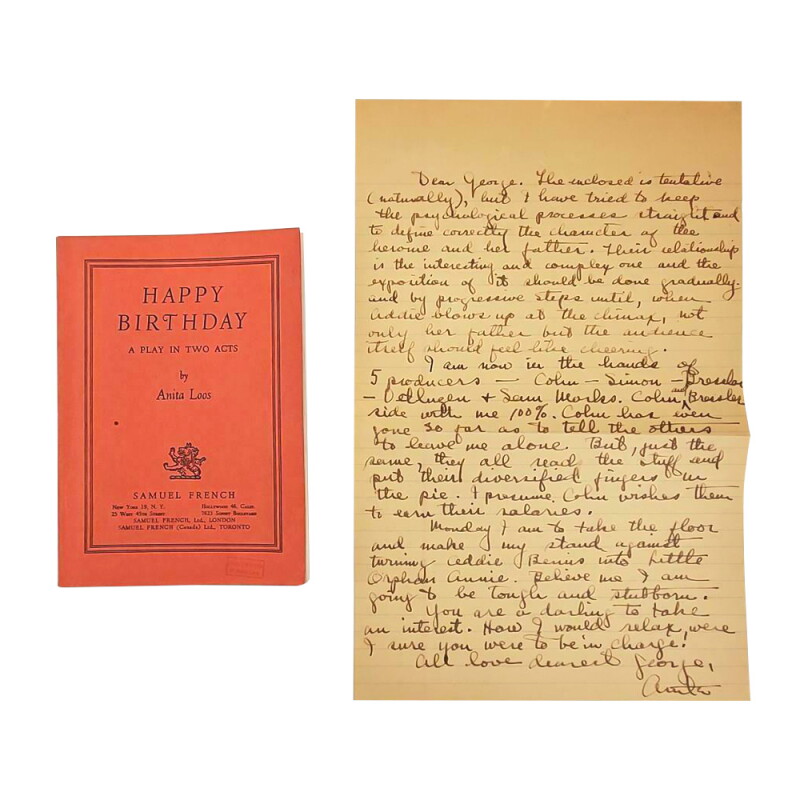 HAPPY
BIRTHDAY
A PLAY IN TWO ACTS
by
Anita Loos
SAMUEL FRENCH
New York 19, N. Y.
25 West 45th Street
Hollywood 46, Calif.
7623 Sunset Boulevard
SAMUEL FRENCH, Ltd., LONDON
SAMUEL FRENCH (Canada) Ltd., TORONTO
Dear George. The inclosed is tentative
(naturally), but I have tried to keep
the psychological processes straight and
to define correctly the character of the
heroine and her father. Their relationship
is the interesting and complex one and the
exposition of it should be done gradually
and by progressive steps until, when
Addie blows up at the climax, not
only her father but the audience
itself should feel like cheering.
I am now in the hands of
5 producers — Cohn — Simon — Bressler
— & Sam Marks. Cohn, and Bressler
side with me 100%. Cohn has even
gone so far as to tell the others
to leave me alone. But, just the
same, they all read the stuff and
put their diversified fingers in
the pie. I presume Cohn wishes them
to earn their salaries.
Monday I am to take the floor
and make my stand against
turning Addie Bemis into Little
Orphan Annie. Believe me I am
going to be tough and stubborn.
You are a darling to take
an interest. How I would relax, were
I sure you were to be in charge.
All love dearest George,
Anita